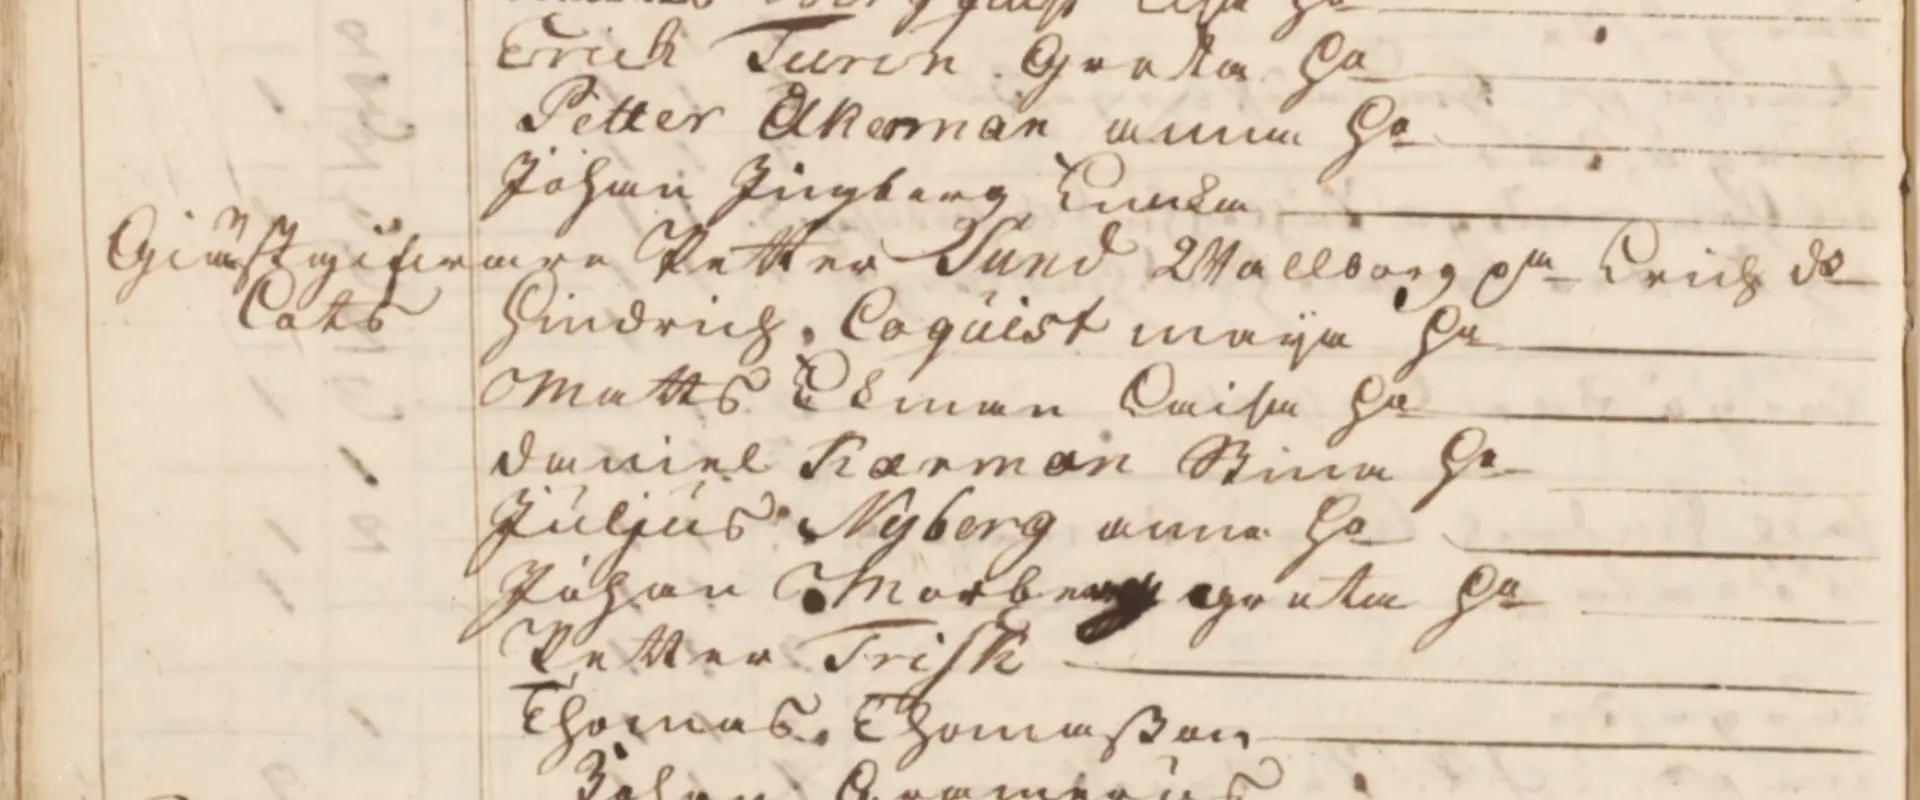 Erich Turin Greta Ha
Petter Åkerman anna Ha
Johan Jngberg Enka
Giästgifvare Petter Sund Wallborg Erich ds
Cats Hindrich Coquist maÿa Ha
Matts Ekman Caisa Ha
daniel Kaerman Stina Ha
Juljus Nyberg anna Ha
Johan Morberg greta Ha
Petter Frisk
Thomas Thomasson
Johan